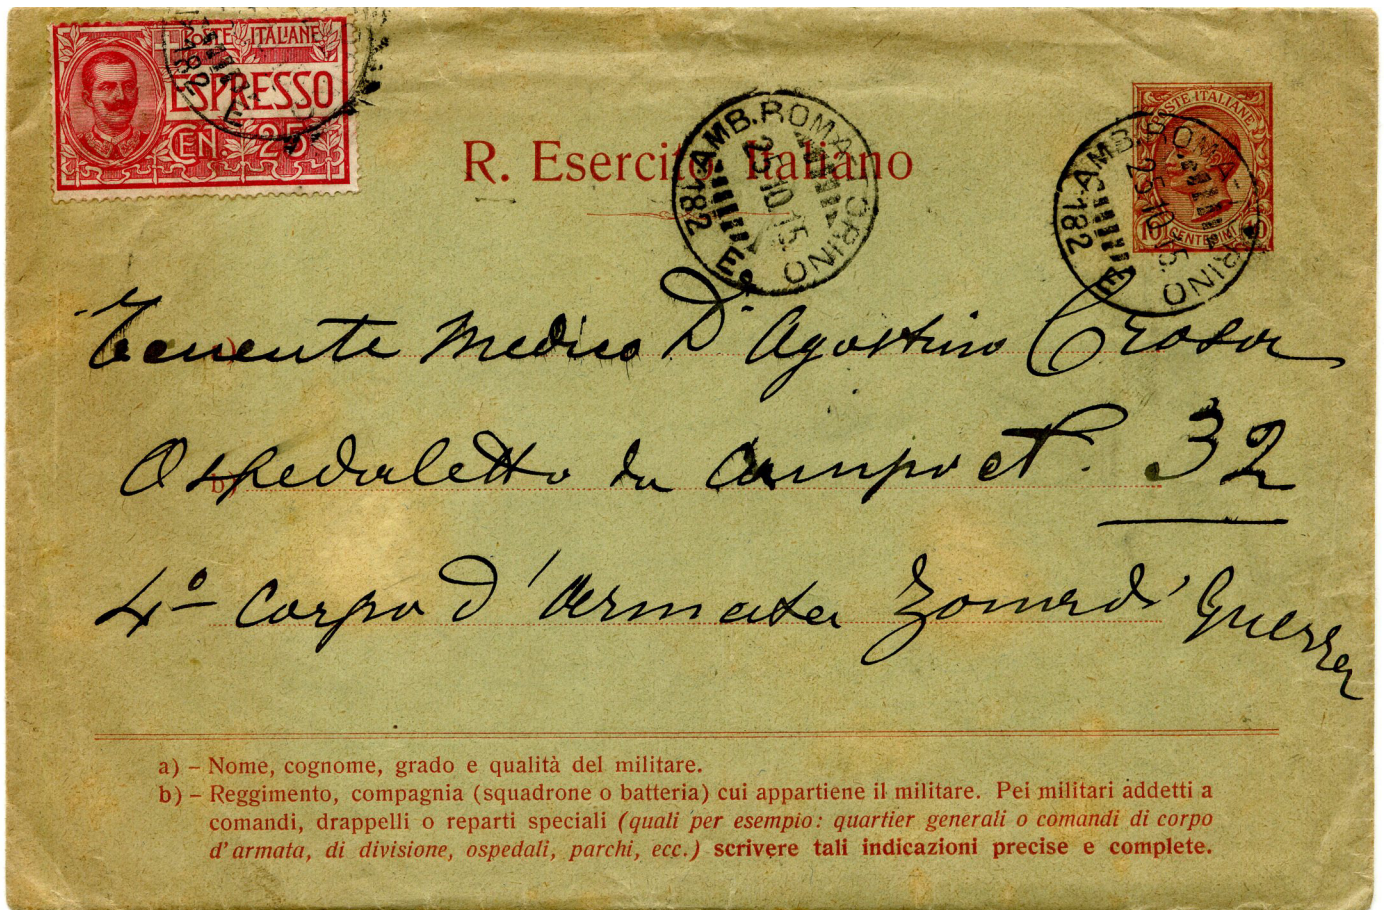 POSTE ITALIANE
ESPRESSO
CEN. 25
R. Esercito Italiano
AMB. ROMA-TORINO 182
25.10.15.
E
POSTE·ITALIANE
10 CENTESIMI 10
AMB. ROMA-TORINO 182
25.10.15.
E
a)
Tenente Medico Dr Agostino Crosa
b)
Ospedaletto da Campo N. 32
4º Corpo d'Armata Zona di Guerra
a) – Nome, cognome, grado e qualità del militare.
b) – Reggimento, compagnia (squadrone o batteria) cui appartiene il militare. Pei militari addetti a
comandi, drappelli o reparti speciali (quali per esempio: quartier generali o comandi di corpo
d'armata, di divisione, ospedali, parchi, ecc.) scrivere tali indicazioni precise e complete.